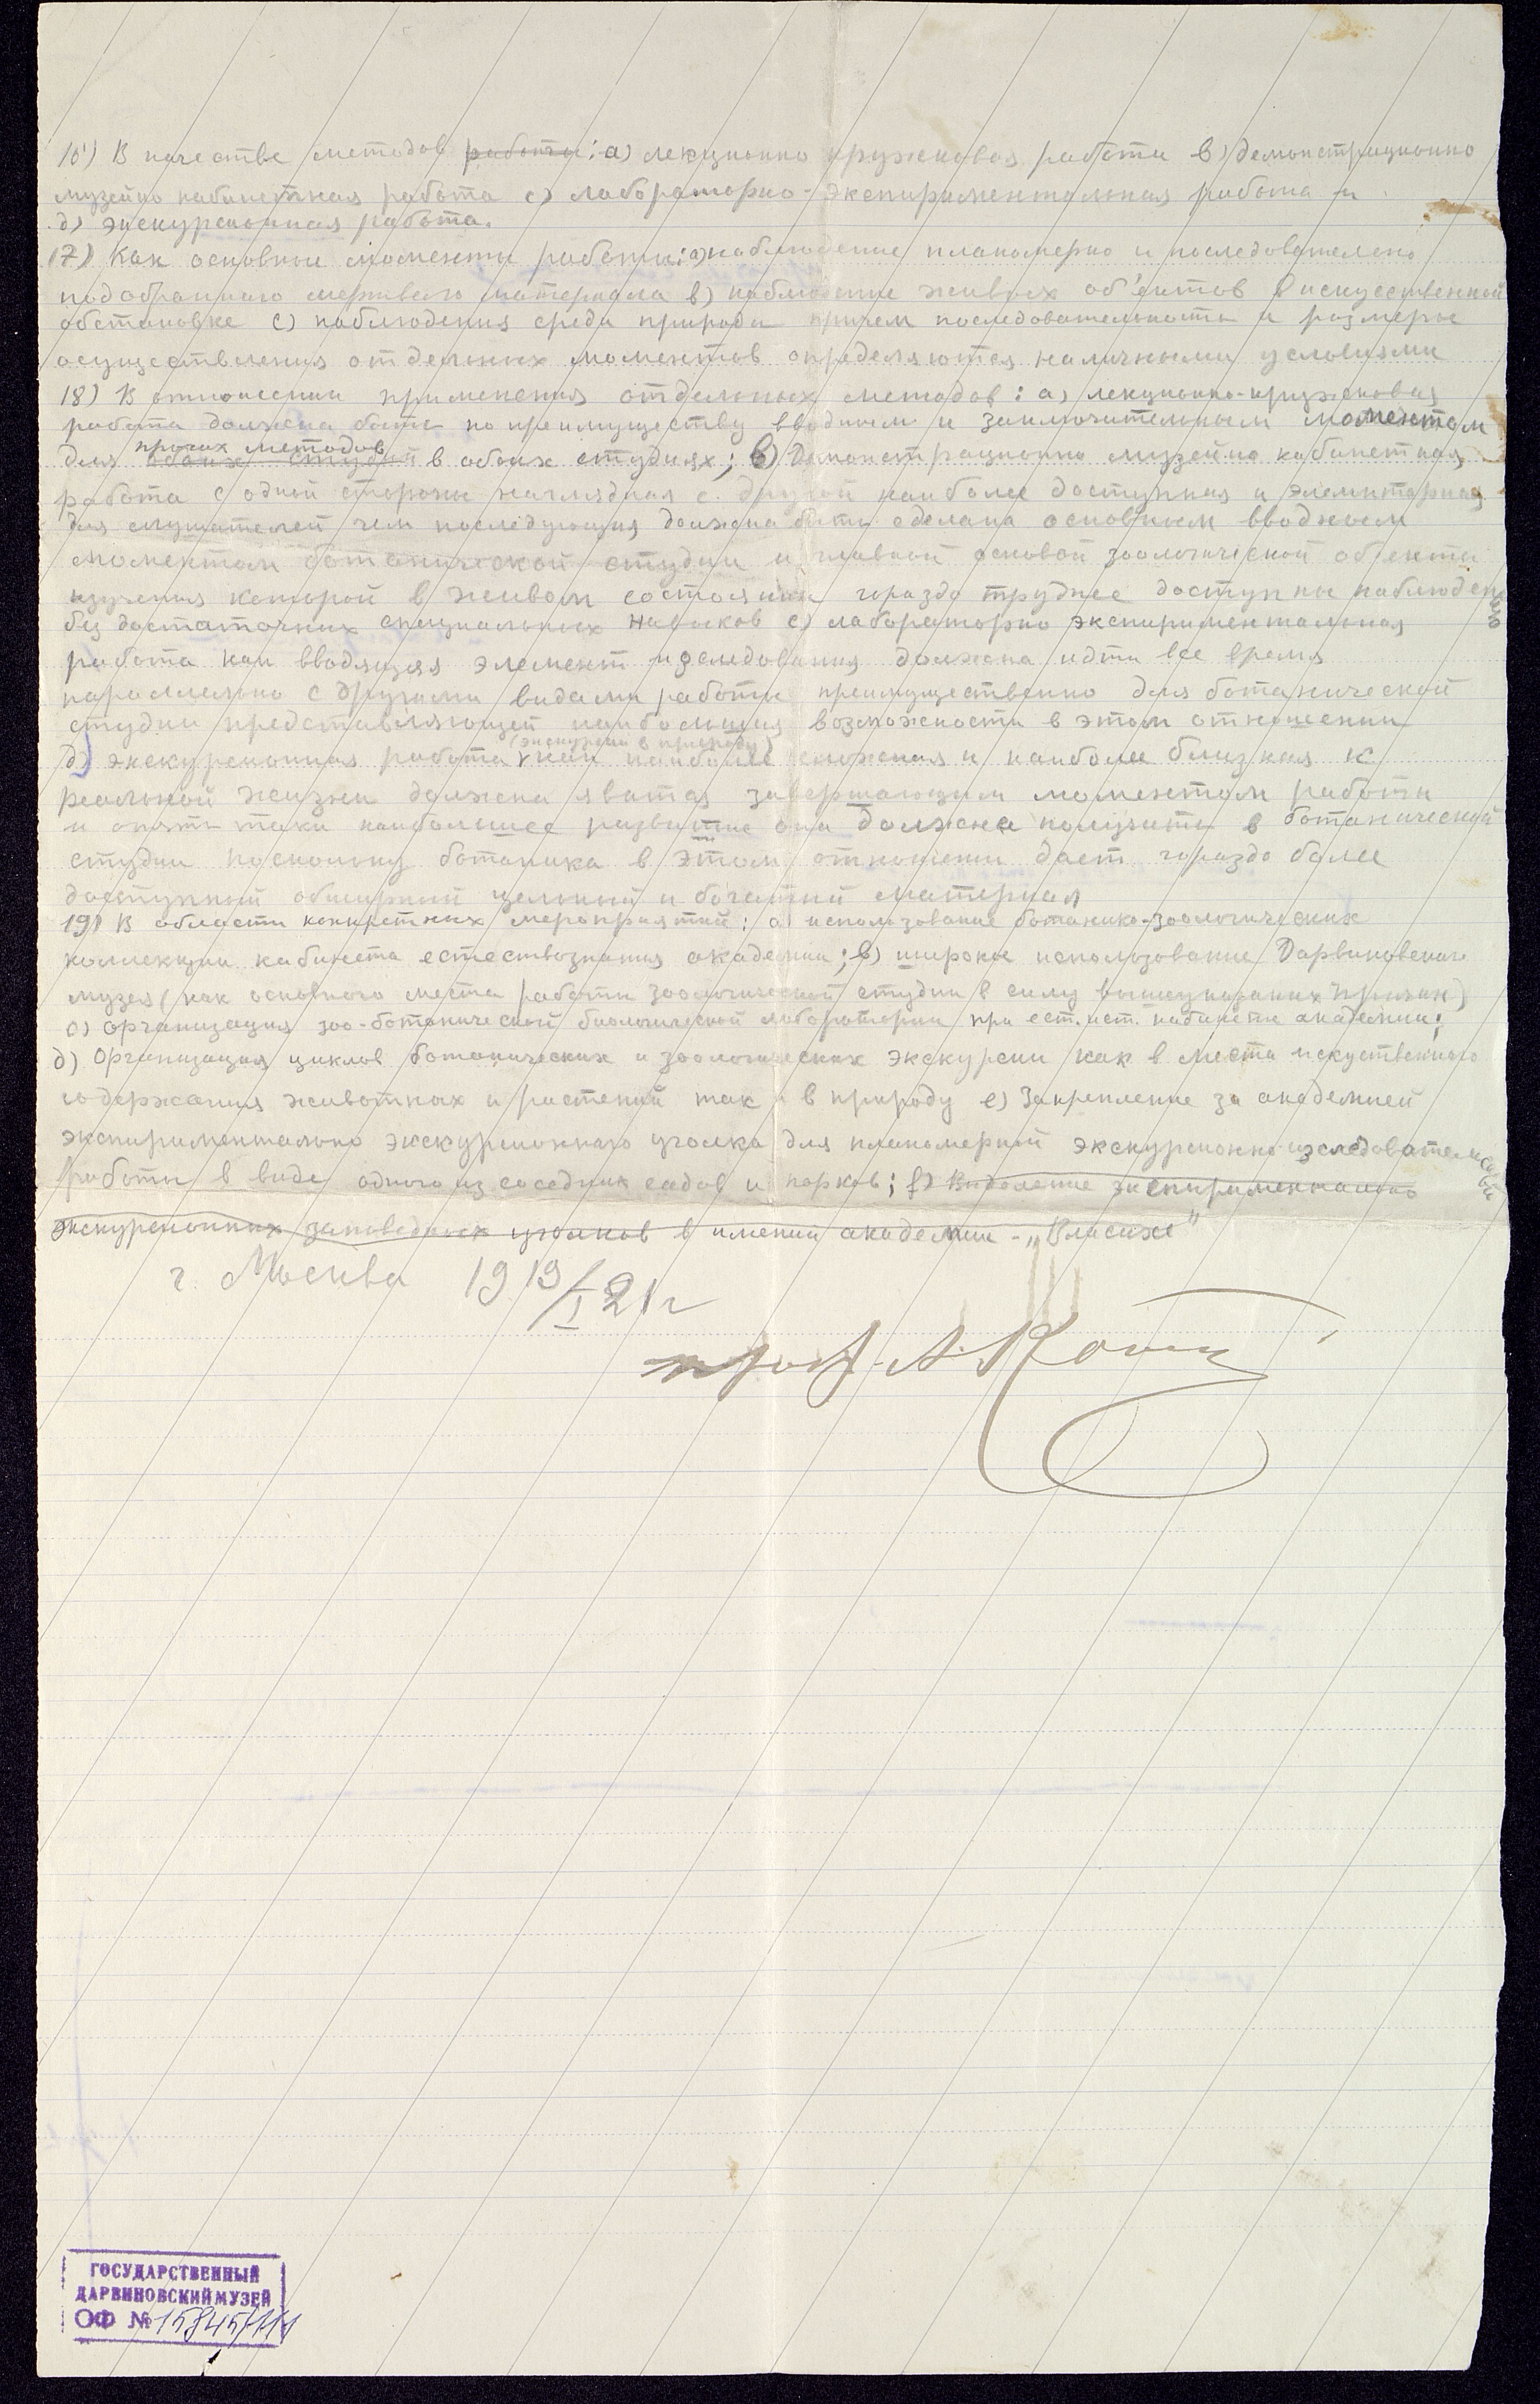 16) В качестве методов работы: а) лекционно кружковая работа в) демонстрационно
музейно кабинетная работа с) лабораторно-экспериментальная работа и
д) экскурсионная работа.
17) Как основные моменты работы: а) наблюдение планомерно и последовательно
подобранного мертвого материала в) наблюдение живых об'ектов в искусственной
обстановке с) наблюдения среди природы причем последовательность и размеры
осуществления отдельных моментов определяются наличными условиями
18) В отношении применения отдельных методов: а) лекционно-кружковая
работа должна быть по преимуществу вводным и заключительным моментом
прочих методов
для обоих студий в обоих студиях; в) Демонстрационно музейно кабинетная
работа с одной стороны наглядная с другой наиболее доступная и элементарная
для слушателей чем последующия должна быть сделана основным вводным
моментом ботанической студии и главной основой зоологической об'екты
изучения которой в живом состоянии гораздо труднее доступны наблюдению
без достаточных специальных навыков с) лабораторно экспериментальная
работа как вводящая элемент изследования должна идти все время
параллельно с другими видами работы преимущественно для ботанической
студии представляющей наибольшия возможности в этом отношении
(экскурсии в природу)
д) экскурсионная работа как наиболее сложная и наиболее близкая к
реальной жизни должна явится завершающим моментом работы
и опять таки наибольшее развитие она должна получить в ботанической
студии поскольку ботаника в этом отношении дает гораздо более
доступный обширный цельный и богатый материал
19) В области конкретных мероприятий: а) использование ботанико-зоологических
коллекции кабинета естествознания академии; в) широкое использование Дарвиновского
музея (как основного места работы зоологической студии в силу вышеуказаных причин)
с) организация зоо-ботанической биологической лаборатории при ест.ист. кабинете академии;
д) Организация циклов ботанических и зоологических экскурсии как в места искуственного
содержания животных и растений так и в природу е) Закрепление за академией
экспериментально экскурсионнаго уголка для планомерной экскурсионно-изследовательской
работы в виде одного из соседних садов и парков; f) Выделение экспериментально
экскурсионных заповедных уголков в имении академии - „Власихе"
г. Москва 1919/I 21 г
проф. А. Котс
ГОСУДАРСТВЕННЫЙ
ДАРВИНОВСКИЙ МУЗЕЙ
ОФ № 15845/111